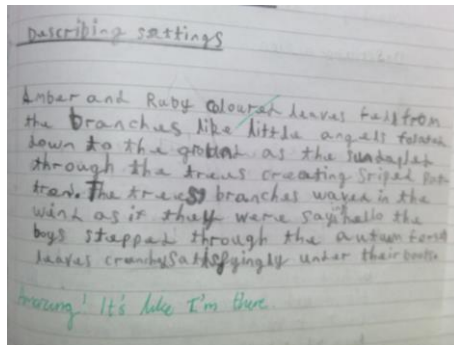 Describing settings
Amber and Ruby coloured leaves fell from
the branches like little angels
down to the ground as the sun dapled
through the trees creating Sriped Pat
tren. The trees branches waved in the
wind as if they were say hello the
boys stepped through the autum forest
leaves crunchy Satisfyingly under their boots
Amazing! It's like I'm there.